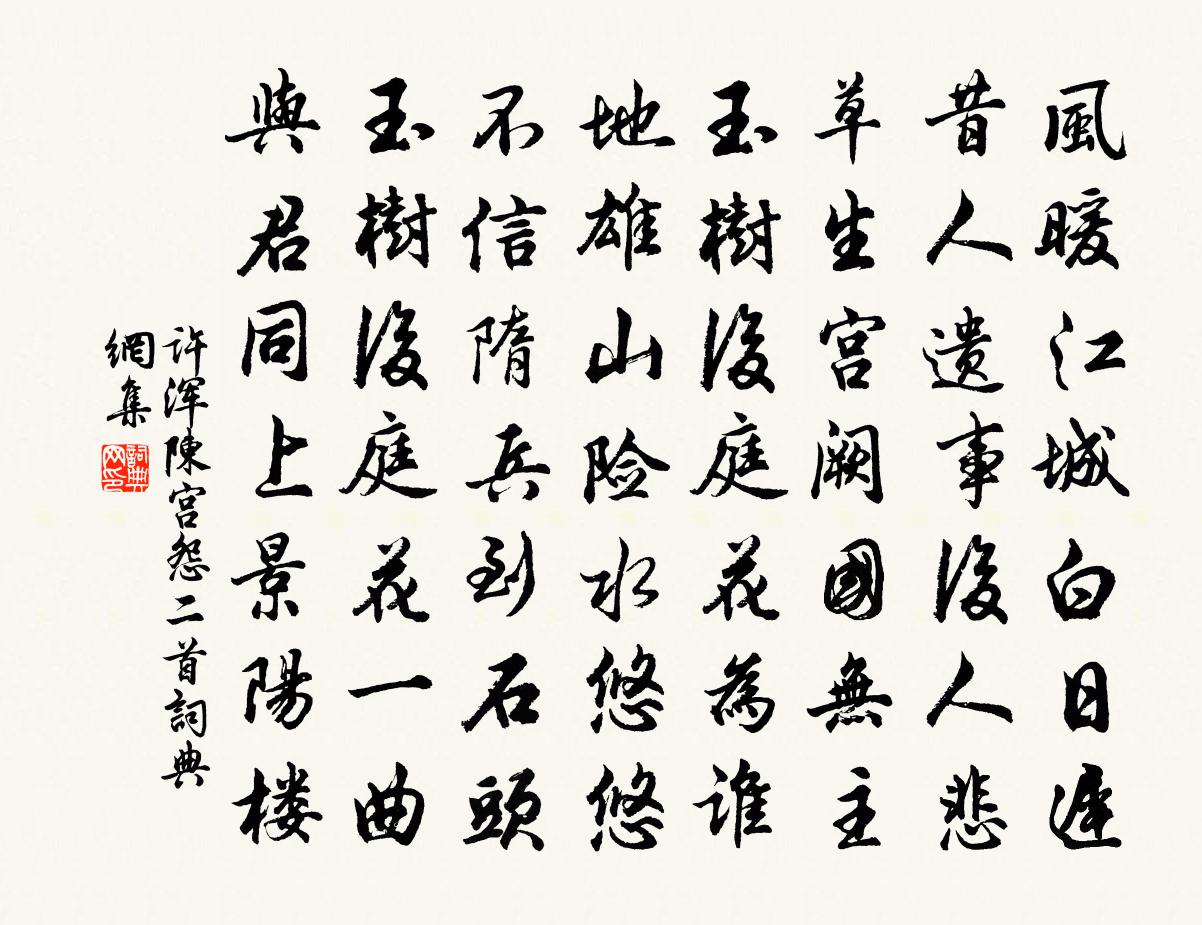 風暖江城白日遲
昔人遗事後人悲
草生宫阙國無主
玉樹後庭花為誰
地雄山险水悠悠
不信隋兵到石頭
玉樹後庭花一曲
與君同上景陽楼
许浑陳宫怨二首詞典
網集
詞典
网印